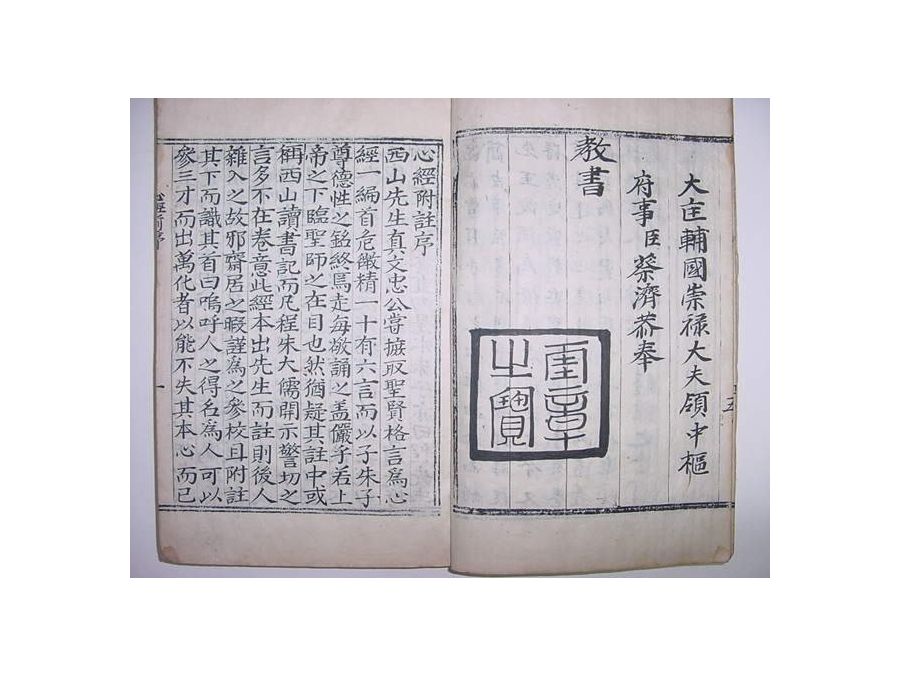 五
大匡輔國崇祿大夫領中樞
府事臣蔡濟恭奉
教書
奎章
之寶
心經附註序
西山先生真文忠公嘗摭取聖賢格言爲心
經一編首危微精一十有六言而以子朱子
尊德性之銘終焉走每敬誦之盖儼乎若上
帝之下臨聖師之在目也然猶疑其註中或
稱西山讀書記而凡程朱大儒開示警切之
言多不在卷意此經本出先生而註則後人
雜入之故邪齋居之暇謹爲之參校且附註
其下而識其首曰嗚呼人之得名爲人可以
參三才而出萬化者以能不失其本心而已
一